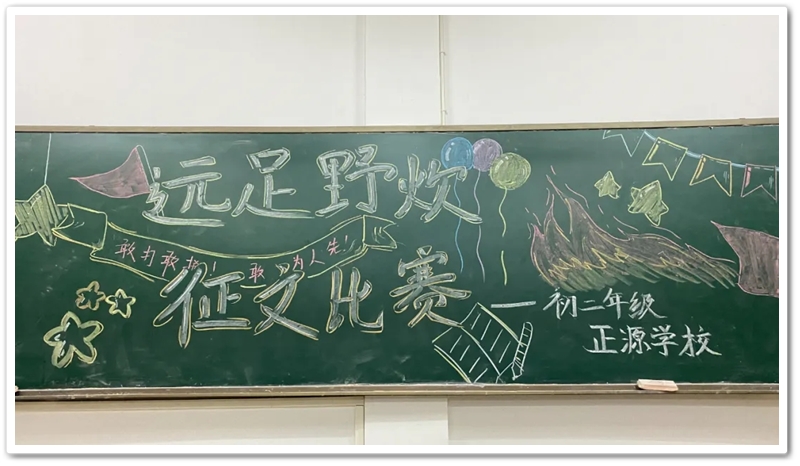 远足野炊
敢打敢拼！敢为人先！
征文比赛
一初二年级
正源学校